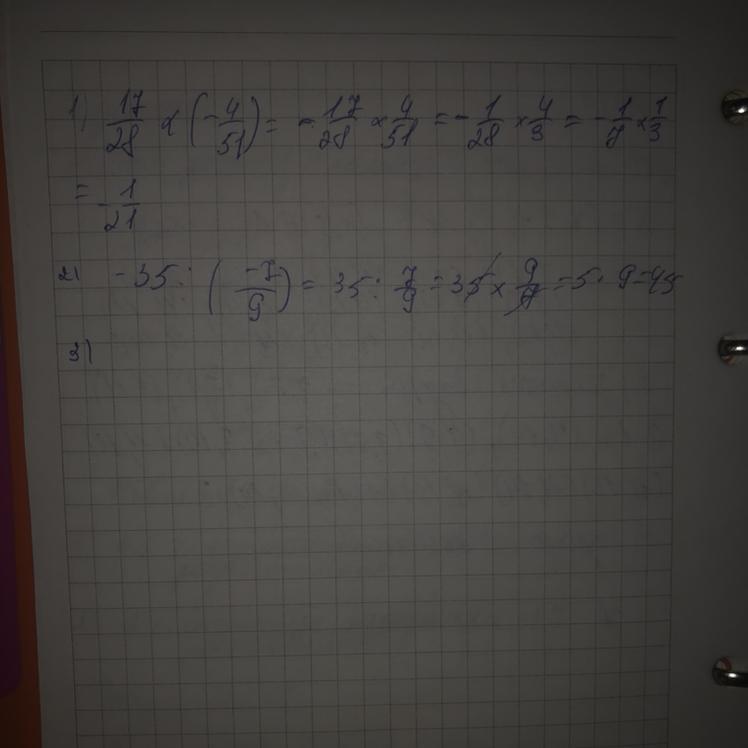 1) 17/28 × (-4/51) = -17/28 × 4/51 = -1/28 × 4/3 = -1/7 × 1/3
= -1/21
2) -35 : (-7/9) = 35 : 7/9 = 35 × 9/7 = 5 · 9 = 45
3)